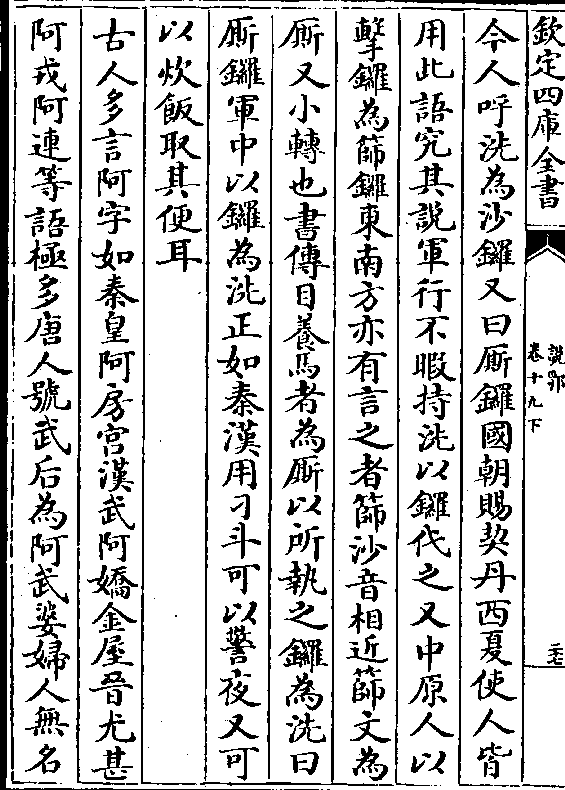 欽定四庫全書
說郛
卷十九下
二七
今人呼洗為沙鑼又曰厮鑼國朝賜契丹西夏使人皆
用此語究其説軍行不暇持洗以鑼代之又中原人以
擊鑼為篩鑼東南方亦有言之者篩沙音相近篩文為
厮又小轉也書傳目養馬者為厮以所執之鑼為洗曰
厮鑼軍中以鑼為洗正如秦漢用刁斗可以警夜又可
以炊飯取其便耳
古人多言阿字如秦皇阿房宫漢武阿嬌金屋晉尤甚
阿戎阿連等語極多唐人號武后為阿武婆婦人無名